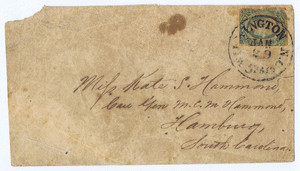 JAN
29
Miss Kate S. Hammond,
Care Gen M. C. M. Hammond,
Hamburg,
South Carolina